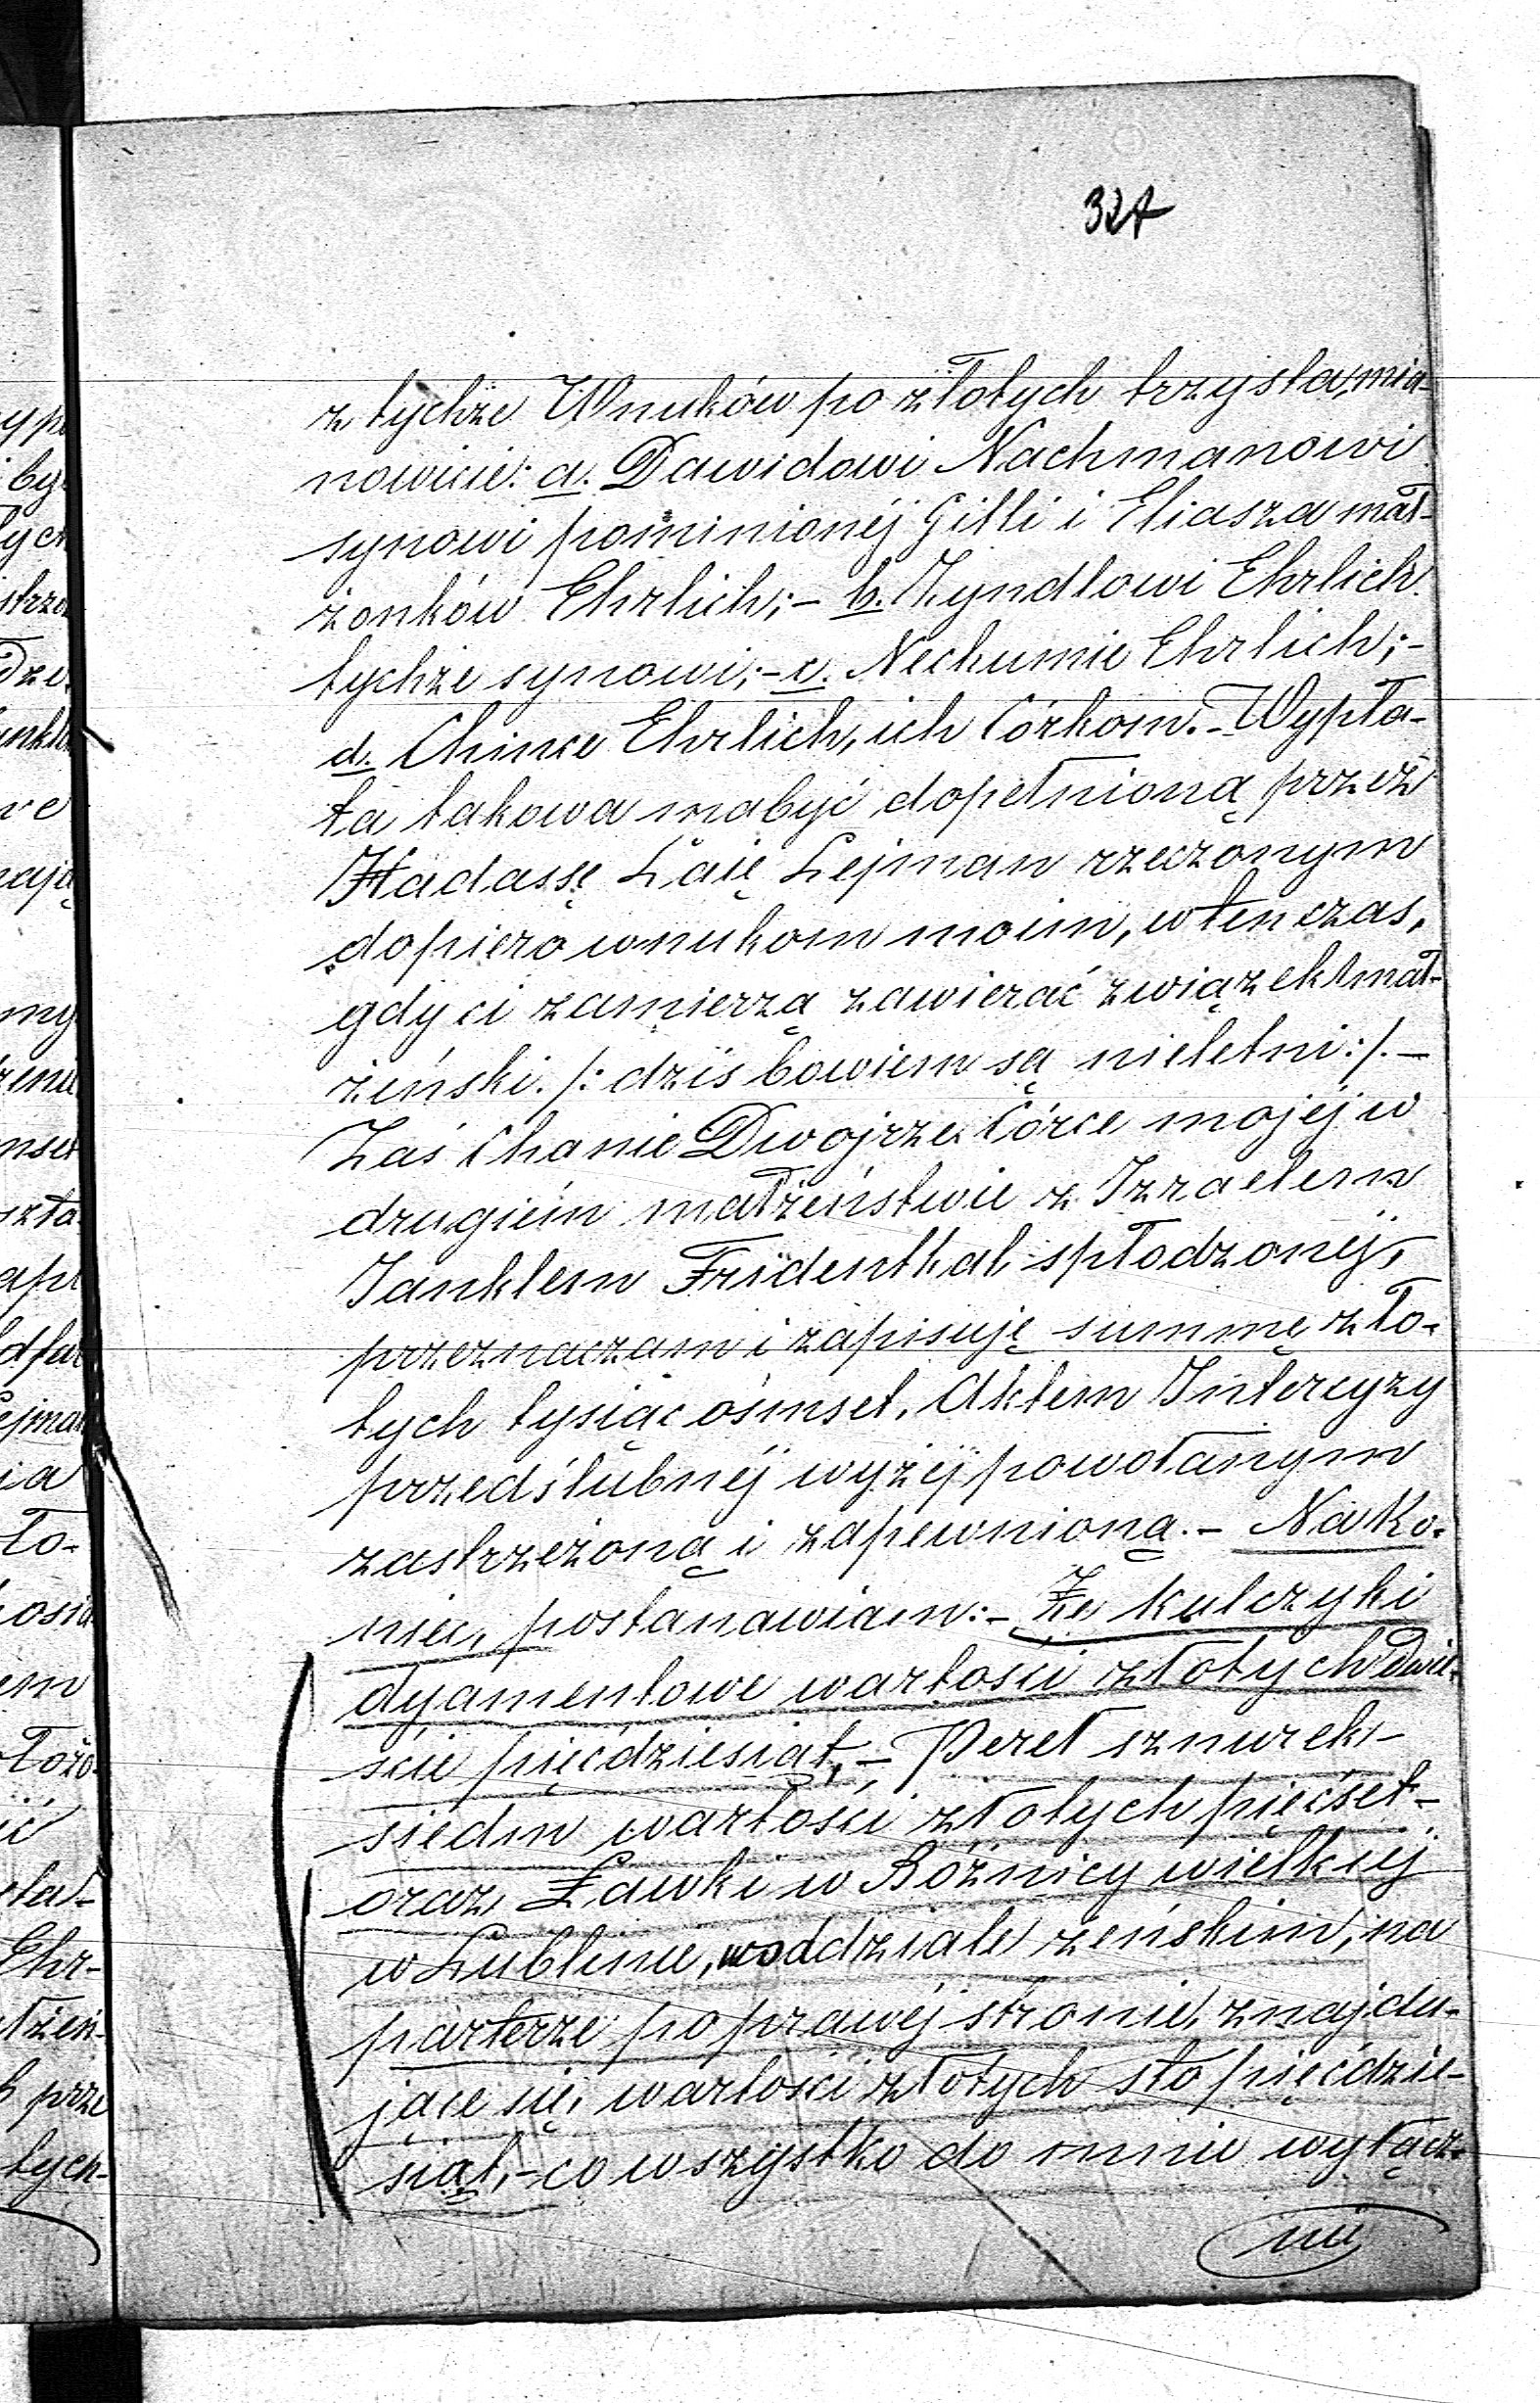 327
z tychże Wnuków po złotych trzysta, mia-
nowicie: a. Dawidowi Nachmanowi
synowi pominionéj Gitli i Eliasza mał-
żonków Ehrlich; - b. Zyndlowi Ehrlich
tychże synowi; - c. Nechumie Ehrlich; -
d. Chince Ehrlich, ich Córkom. - Wypła-
ta takowa ma być dopełnioną przez
Hadassę Łaię Lejman rzeczonym
dopiero wnukom moim, wtenczas,
gdy ci zamierzą zawierać związek mał-
żeński. /: dziś bowiem są nieletni :/. -
Zaś Chanie Dwojrze Córce mojéj w
drugiém małżeństwie z Izraelem
Janklem Fridenthal spłodzonéj,
przeznaczam i zapisuję summę zło-
tych tysiąc ośmset, Aktem Intercyzy
przedślubnéj wyżéj powołanym
zastrzeżoną i zapewnioną. - Nako-
niec, postanawiam: - Że kulczyki
dyamentowe wartości złotych dwie-
ście pięćdziesiąt, - Pereł sznurek -
siedm wartości złotych pięćset -
oraz Ławki w Bóżnicy wielkiéj
w Lublinie, w oddziale żeńskim, na
parterze po prawéj stronie, znajdu-
jące się, wartości złotych sto pięćdzie-
siąt, - co wszystko do mnie wyłącz-
nie